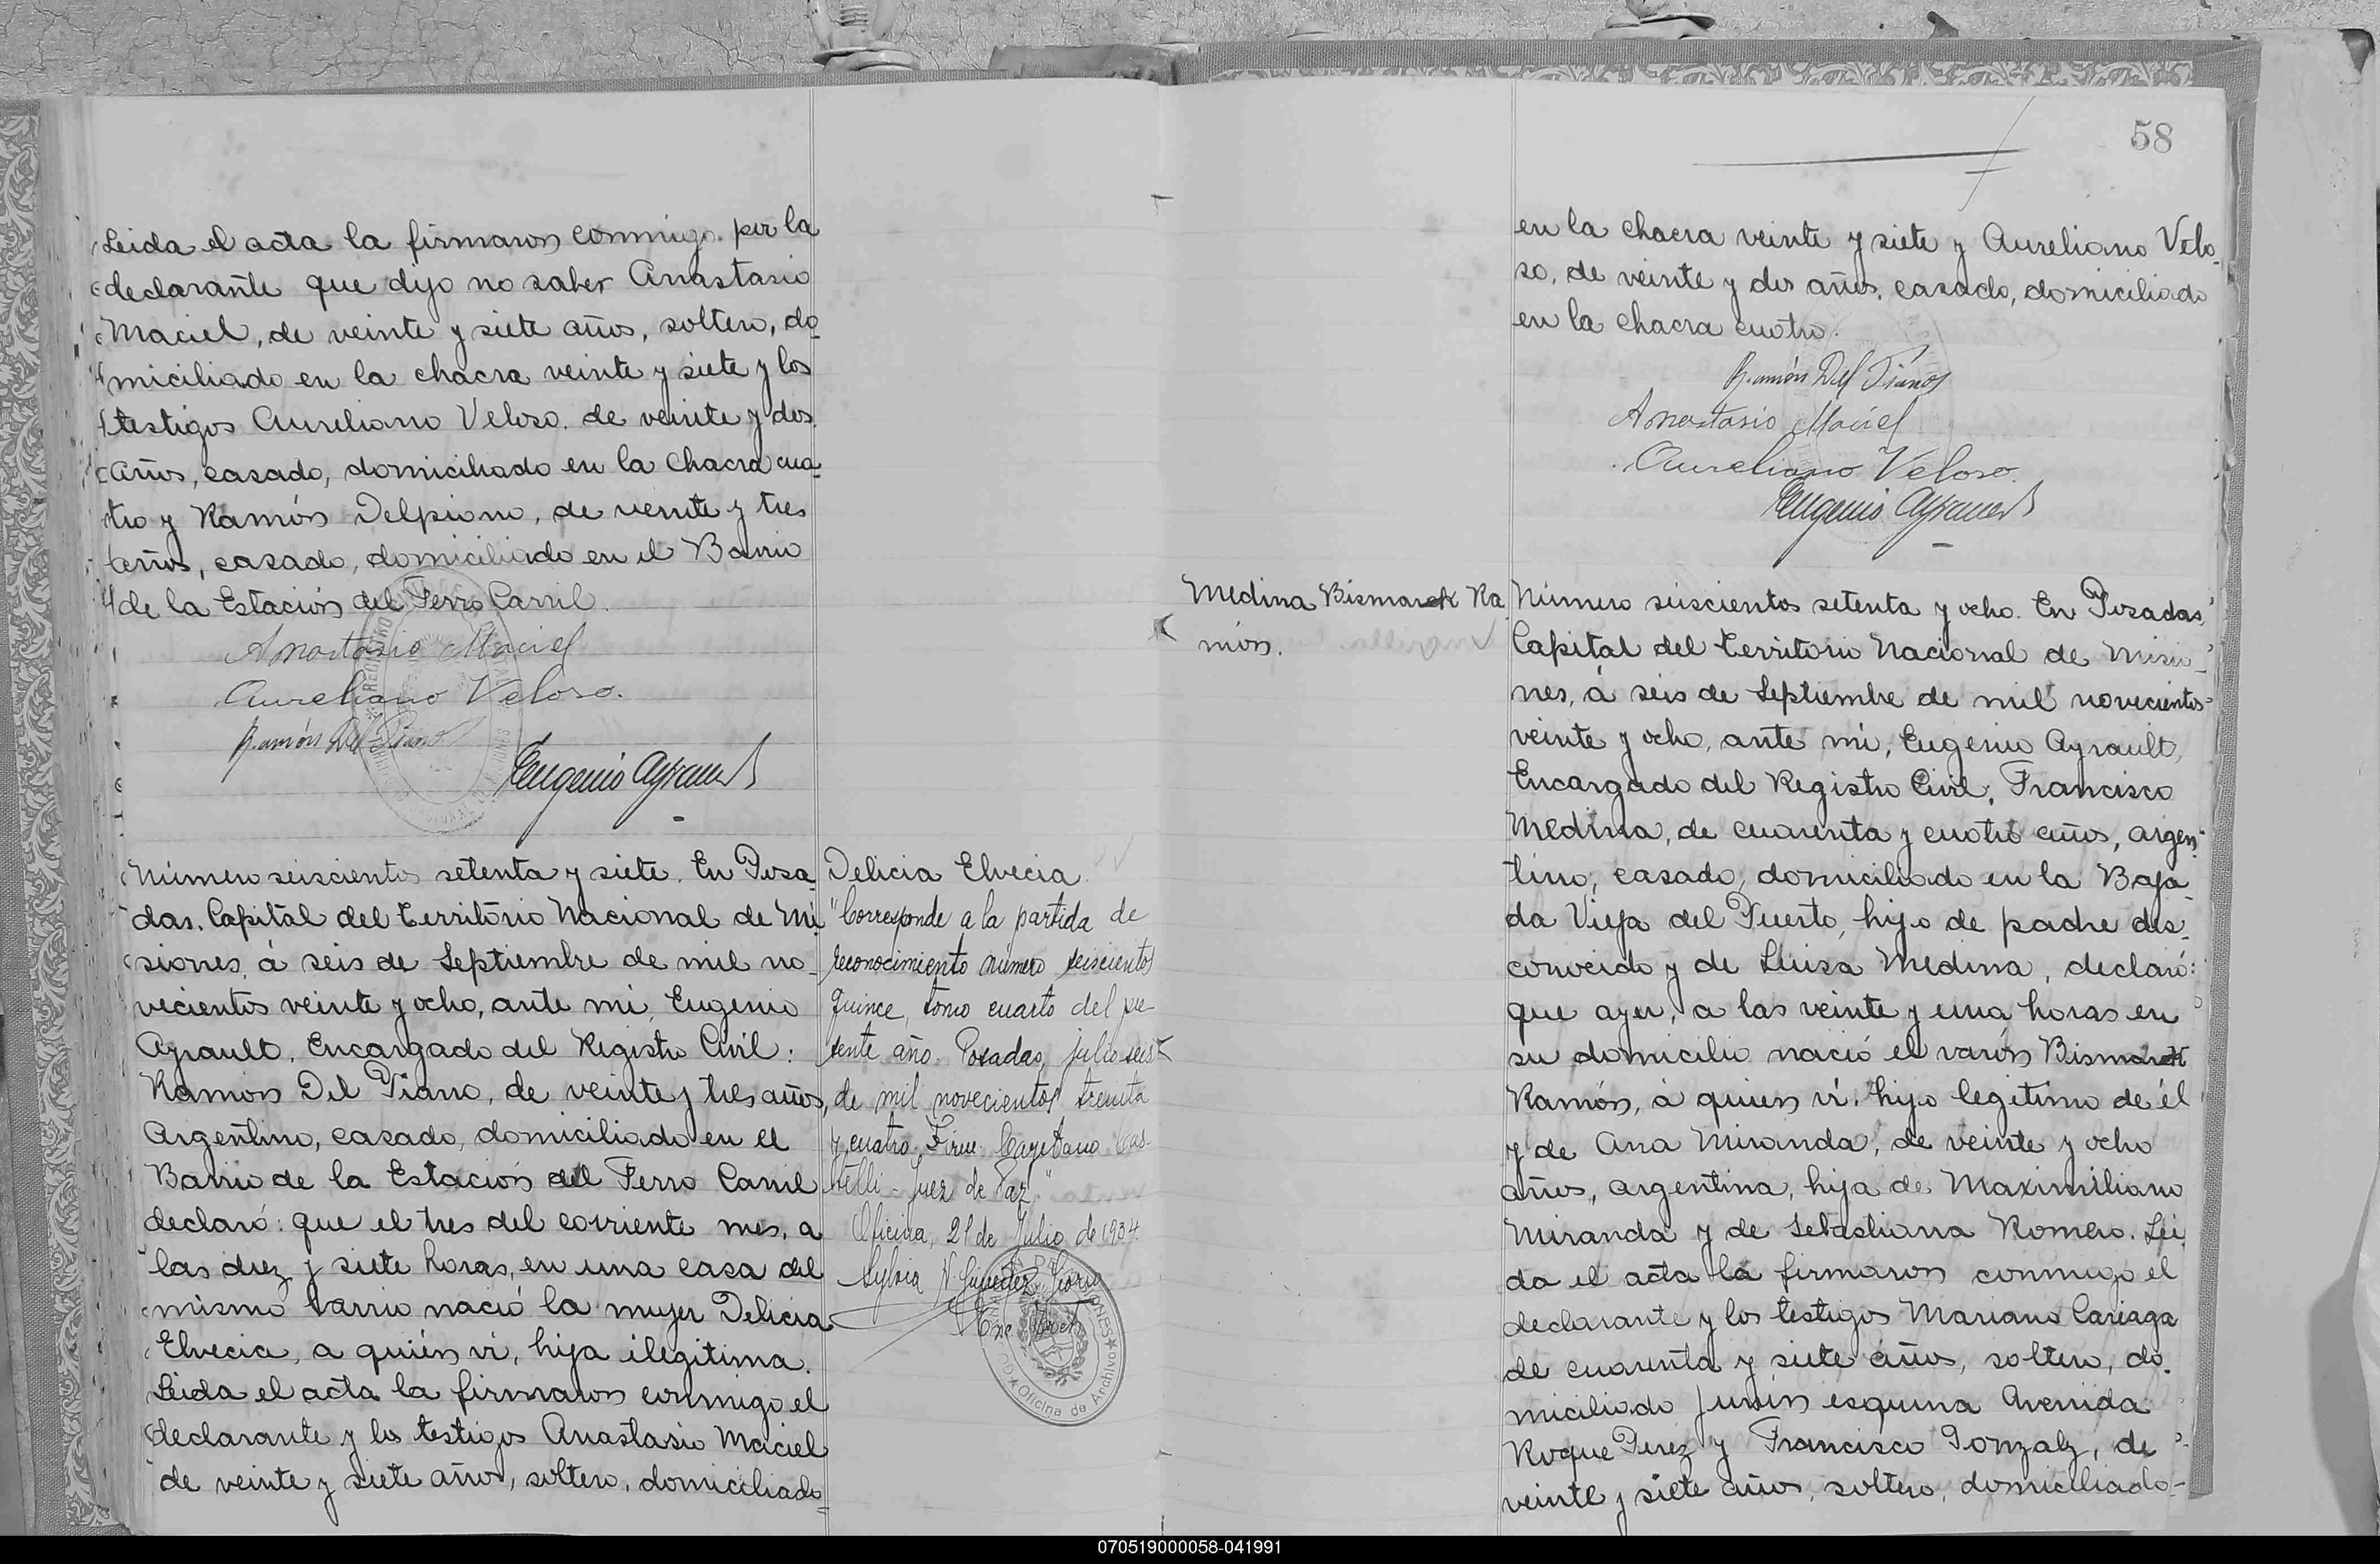 Leida el acta la firmaron conmigo. por la
declarante que dijo no saber Anastasio
Maciel, de veinte y siete años, soltero, do-
miciliado en la chacra veinte y siete y los
testigos Aureliano Veloso. de veinte y dos
años, casado, domiciliado en la Chacra cua-
tro y Ramón Delpiano, de veinte y tres
años, casado, domiciliado en el Barrio
de la Estación del Ferro Carril.
Anastasio Maciel
Aureliano Veloso.
Ramón Del Piano
Eugenio Ayrault
Número seiscientos setenta y siete. En Posa-
das. Capital del Territorio Nacional de Mi
siones, á seis de Septiembre de mil no-
vecientos veinte y ocho, ante mi, Eugenio
Ayrault, Encargado del Registro Civil:
Ramon Del Piano, de veinte y tres años,
Argentino, casado, domiciliado en el
Barrio de la Estación del Ferro Carril
declaró: que el tres del corriente mes, a
las diez y siete horas, en una casa del
mismo barrio nació la mujer Delicia
Elvecia, a quién vi, hija ilegitima.
Leida el acta la firmaron conmigo el
declarante y los testigos Anastasio Maciel
de veinte y siete años, soltero, domiciliado
Delicia Elvecia
"Corresponde a la partida de
reconocimiento número seiscientos
quince, tomo cuarto del pre-
sente año. Posadas, julio seis
de mil novecientos treinta
y cuatro. Firm. Cayetano Cas-
telli - Juez de Paz"
Oficina, 21 de Julio de 1934.
Sylvia
Oficina de Archivo
58
en la chacra veinte y siete y Aureliano Velo-
so, de veinte y dos años, casado, domiciliado
en la chacra cuatro.
Ramón Del Piano
Anastasio Maciel
Aureliano Veloso.
Eugenio Ayrault
Medina Bismarck Ra
món.
Número seiscientos setenta y ocho. En Posadas,
Capital del Territorio Nacional de Misio-
nes, á seis de Septiembre de mil novecientos
veinte y ocho, ante mi, Eugenio Ayrault,
Encargado del Registro Civil, Francisco
Medina, de cuarenta y cuatro años, argen-
tino, casado, domiciliado en la Baja-
da Vieja del Puerto, hijo de padre des-
conocido y de Luisa Medina, declaró:
que ayer, a las veinte y una horas en
su domicilio nació el varón Bismarck
Ramón, á quien vi, hijo legitimo de él
y de Ana Miranda, de veinte y ocho
años, argentina, hija de Maximiliano
Miranda y de Sebastiana Romero. Lei
da el acta la firmaron conmigo el
declarante y los testigos Mariano Cariaga
de cuarenta y siete años, soltero, do-
miciliado Junin esquina Avenida
Roque Perez y Francisco Gonzalz, de
veinte y siete años, soltero, domiciliado-
070519000058-041991